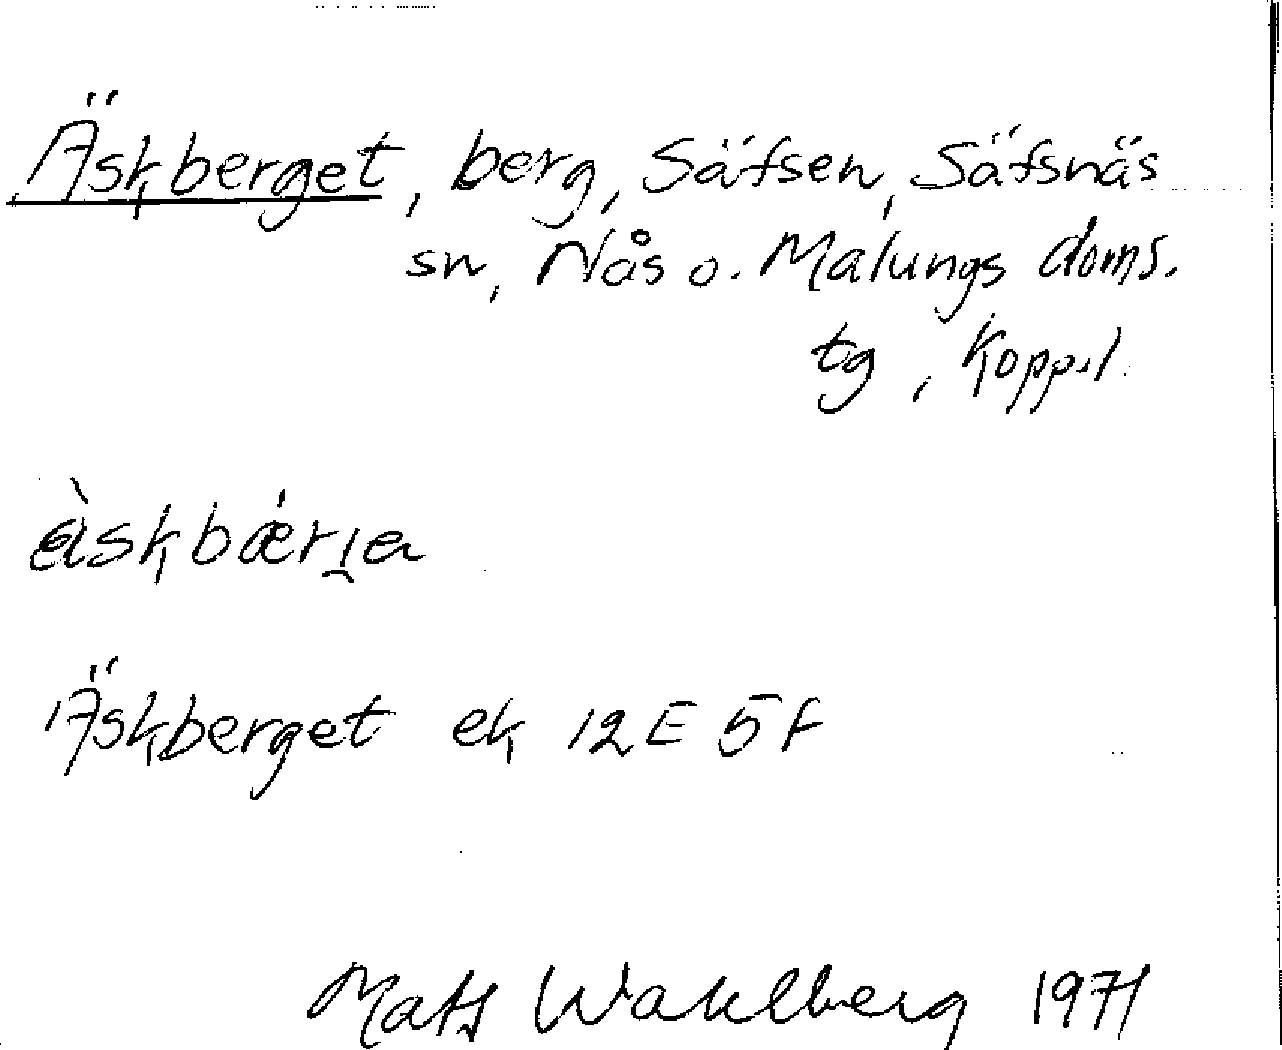 Äskberget, berg, Säfsen, Säfsnäs
sn, Nås o. Malungs doms.
tg, Kopp.l.
Äskberget ek 12E 5f
Mats Wahlberg 1971